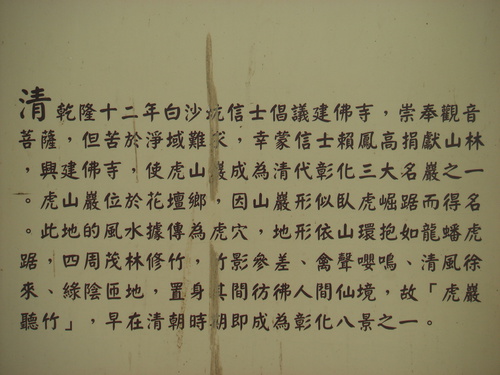 清乾隆十二年白沙坑信士倡議建佛寺，崇奉觀音
菩薩，但苦於淨域難求，幸蒙信士賴鳳高捐獻山林
，興建佛寺，使虎山巖成為清代彰化三大名巖之一
。虎山巖位於花壇鄉，因山巖形似臥虎崛踞而得名
。此地的風水據傳為虎穴，地形依山環抱如龍蟠虎
踞，四周茂林修竹，竹影參差、禽聲嚶鳴、清風徐
來、綠陰匝地，置身其間彷彿人間仙境，故「虎巖
聽竹」，早在清朝時期即成為彰化八景之一。